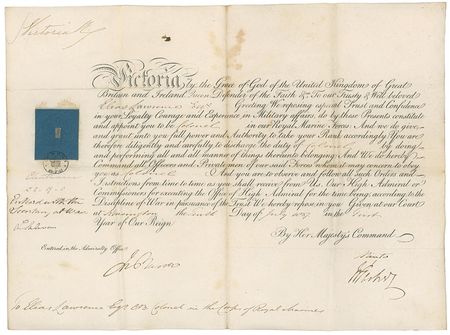 Victoria R
Victoria, by the Grace of God of the United Kingdom of Great
Britain and Ireland Queen Defender of the Faith &c To our Trusty & Well beloved
Elias Lawrence Esqr. Greeting We reposing especial Trust and Confidence
in your Loyalty Courage and Experience in Military affairs, do by these Presents constitute
and appoint you to be Colonel in our Royal Marine Forces And we do give
and grant unto you full power and Authority to take your Rank accordingly You are
therefore diligently and carefully to discharge the duty of Colonel by doing
and performing all and all manner of things thereunto belonging And We do hereby
Command all Our Officers and Soldiers of our said Forces
you as Colonel And you are to observe and follow all such Orders and
Instructions from time to time as you shall receive from Us, Our High Admiral or
Commissioners for executing the Office of High Admiral for the time being, according to the
Discipline of War in pursuance of the Trust We hereby repose in you Given at our Court
at Kensington the day of July 1837 in the First
Year of Our Reign
By Her Majesty's Command
Entered in the Admiralty Office
Minto
To Elias Lawrence Esqr CB Colonel in the Corps of Royal Marines